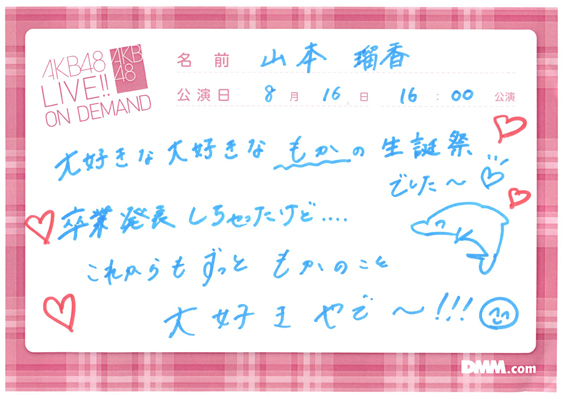 AKB48
LIVE!!
ON DEMAND
AKB
48
名前 山本 瑠香
公演日 8月16日 16:00 公演
大好きな大好きなもかの生誕祭
でした〜
卒業発表しちゃったけど....
これからもずっともかのこと
大好きやで〜!!!
DMM.com